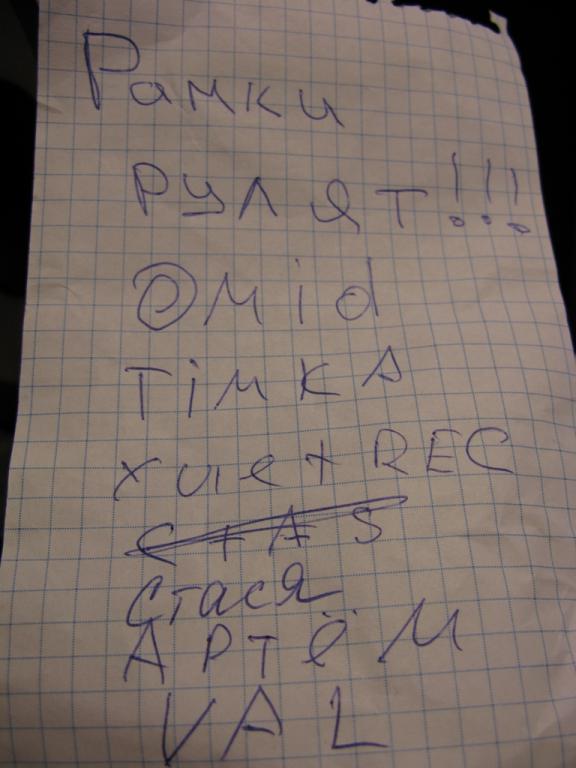 Рамки
рулят!!!
Omid
Тімка
xuet REC
Stas
Стася
Артём
VAL